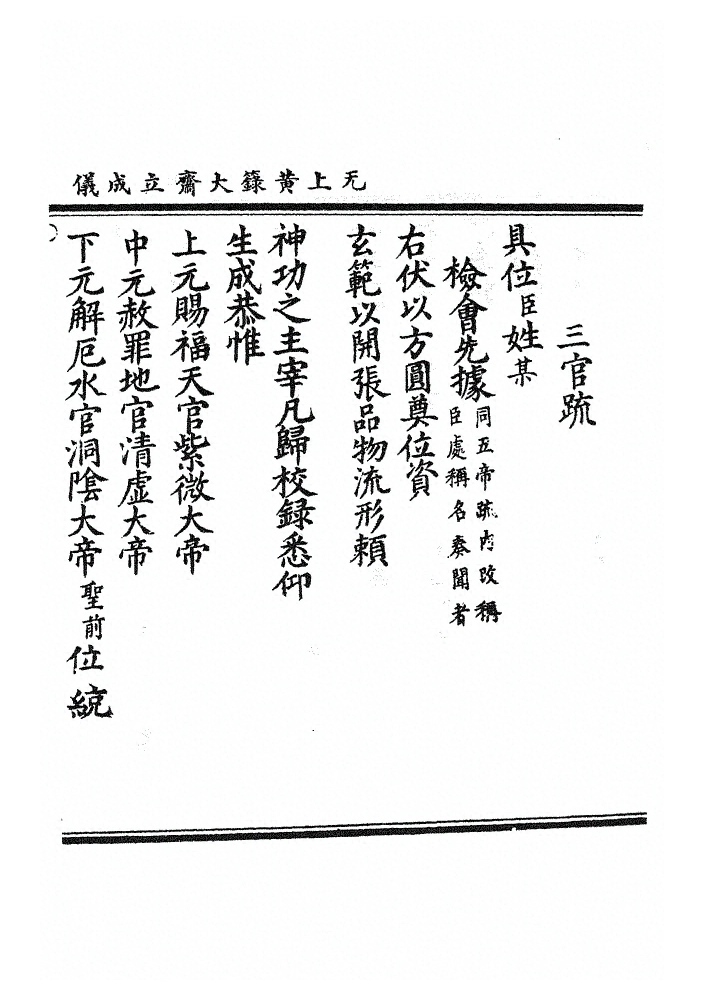 无上黄籙大齋立成儀
三官疏
具位臣姓某
檢會先據同五帝疏内改稱臣處稱名奏聞者
右伏以方圓奠位資
玄範以開張品物流形頼
神功之主宰凡歸校録悉仰
生成恭惟
上元賜福天官紫微大帝
中元赦罪地官清虚大帝
下元解厄水官洞陰大帝聖前位統